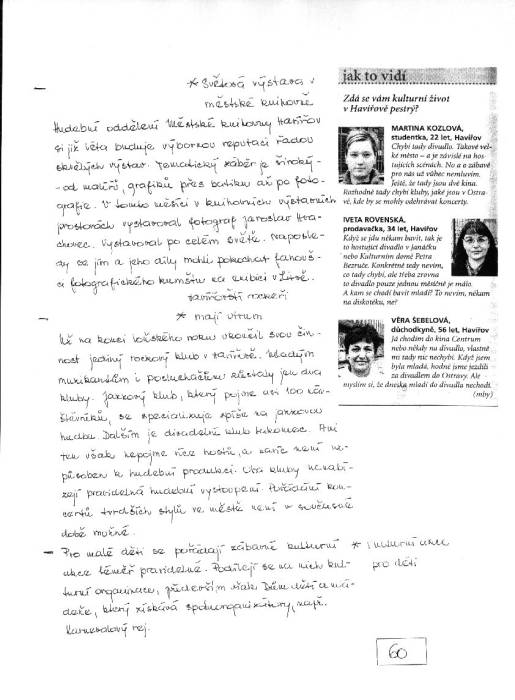 * Světová výstava v
městské knihovně
Hudební oddělení Městské knihovny Havířov
si již léta buduje výbornou reputaci řadou
skvělých výstav. Tematický záběr je široký -
- od malířů, grafiků přes batiku až po foto-
grafie. V tomto měsíci v knihovních výstavních
prostorách vystavoval fotograf Jaroslav Hra-
chovec. Vystavoval po celém světě. Naposle-
dy se jím a jeho díly mohli pokochat fanouš-
ci fotografického kumštu na Kubici v Litvě.
Havířovští rockeři
* mají utrum
Už na konci loňského roku ukončil svou čin-
nost jediný rockový klub v Havířově. Mladým
muzikantům i posluchačům zůstaly jen dva
kluby. Jazzový klub, který pojme asi 100 náv-
štěvníků, se specializuje spíše na jazzovou
hudbu. Dalším je divadelní klub Lukomec. Ani
ten však nepojme více hostů, a navíc není uz-
působen k hudební produkci. Oba kluby nenabí-
zejí pravidelná hudební vystoupení. Pořádání kon-
certů tvrdších stylů ve městě není v současné
době možné.
- Pro malé děti se pořádají zábavné kulturní
akce téměř pravidelně. Podílejí se na nich kul-
turní organizace, především však Dům dětí a mlá-
deže, který získává spoluorganizátory, např.
Karnevalový rej.
* Kulturní akce
pro děti
jak to vidí
Zdá se vám kulturní život
v Havířově pestrý?
MARTINA KOZLOVÁ,
studentka, 22 let, Havířov
Chybí tady divadlo. Takové vel-
ké město – a je závislé na hos-
tujících scénách. No a o zábavě
pro nás už vůbec nemluvím.
Ještě, že tady jsou dvě kina.
Rozhodně tady chybí kluby, jaké jsou v Ostra-
vě, kde by se mohly odehrávat koncerty.
IVETA ROVENSKÁ,
prodavačka, 34 let, Havířov
Když se jdu někam bavit, tak je
to hostující divadlo v Janáčku
nebo Kulturním domě Petra
Bezruče. Konkrétně tedy nevím,
co tady chybí, ale třeba zrovna
to divadlo pouze jednou měsíčně je málo.
A kam se chodí bavit mladí? To nevím, někam
na diskotéku, ne?
VĚRA ŠEBELOVÁ,
důchodkyně, 56 let, Havířov
Já chodím do kina Centrum
nebo někdy na divadlo, vlastně
mi tady nic nechybí. Když jsem
byla mladá, hodně jsme jezdili
za divadlem do Ostravy. Ale
myslím si, že dneska mladí do divadla nechodí.
(mby)
60